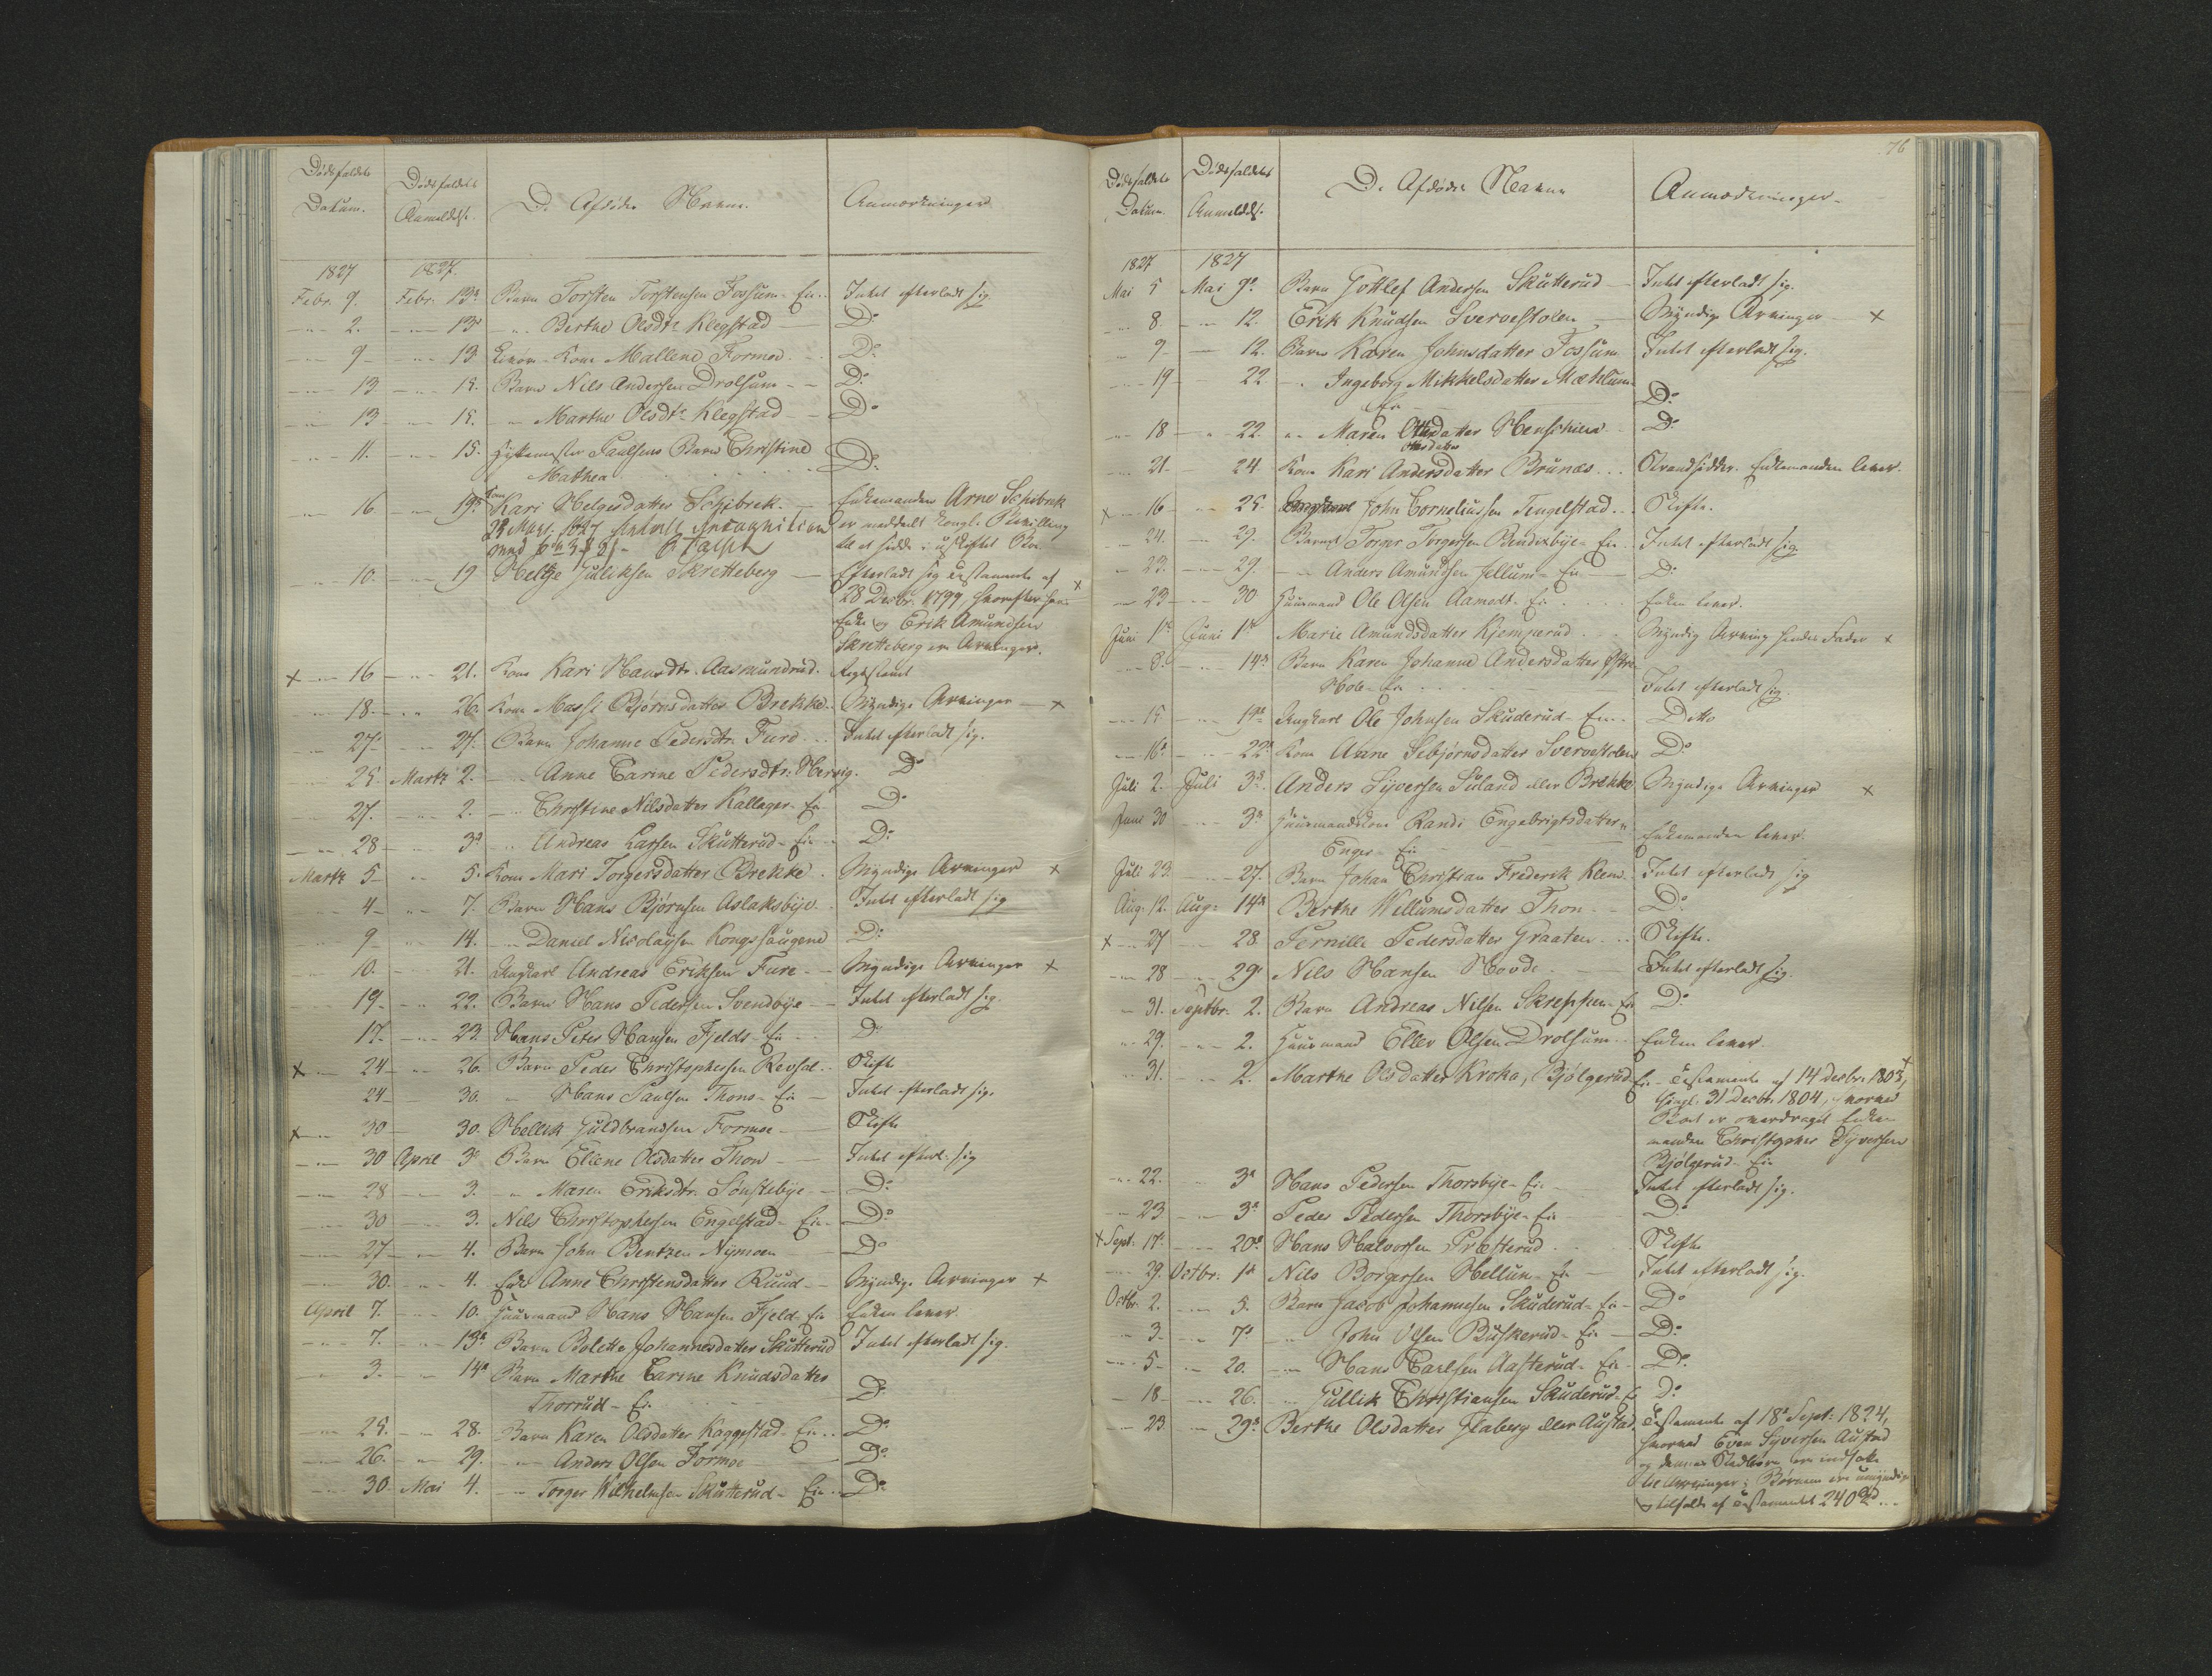 Dødsfaldets Datum. Dødsfaldets Anmeldelse. De Afdødes Navne. Anmærkninger
1827 1827.
Febr. 9. Febr. 13de Barn Torsten Torstensen Fossum - Eie.. Intet efterladt sig
" 2. " 13 " Berthe Olsdtr Klegstad D:o
" 9 " 13 Kone Mallene Formoe. D:o
" 13 " 15. Barn Nils Andersen Drolsum D:o
" 13 " 15. " Marthe Olsdtr Klegstad D:o
" 11. " 15. Paulsens Barn Christine
Mathea D:o
" 16 " 19de Kone Kari Helgesdatter Schibrek. Enkemanden Arne Schibrek
er meddeelt Kongl. Bevilling
til at sidde i uskiftet Boe.
" 10. " 19 Helge Gulliksen Skretteberg Efterladt sig Testamente af ×
28 Decbr. 1799, hvorefter hans
Enke og Erik Amundsen
Skretteberg ere Arvinger.
× " 16 " 21. Kone Kari Hansdtr. Aasmundrud.
" 18. " 26. Kone Massi Bjørnsdatter Brekke. Myndige Arvinger ×
" 27 " 27. Barn Johanne Pedersdtr. Furo Intet efterladt sig.
" 25. Martz 2. " Anne Carine Pedersdtr. Hervig. D:o
" 27. " 2. " Christine Nilsdatter Kallager - Eie D:o
" 28 " 3de " Andreas Larsen Skutterud - Eie D:o
Martz 5 " 5. Kone Mari Torgersdatter Brekke. Myndige Arvinger ×
" 4 " 7. Barn Hans Bjørnsen Aslaksbye. Intet efterladt sig
" 9 " 14. " Daniel Nicolaysen Kongshaugene D:o
" 10. " 21. Ungkarl Andreas Eriksen Fure. Myndige Arvinger ×
" 19 " 22. Barn Hans Pedersen Svendbye Intet efterladt sig.
" 17 " 23. Hans Peter Hansen Fjelds - Eie D:o
× " 24 " 26. Barn Peder Christophersen Revsal. Skifte
24 30. " Hans Paulsen Thons - Eie Intet efterladt sig.
× " 30 30. Hellik Guldbrandsen Formoe Skifte
" 30 April 3de Barn Ellene Olsdatter Thon Intet efterl: sig
" 28 " 3. " Maren Eriksdtr. Sønstebye D:o
" 30 " 3. Nils Christophersen Engelstad - Eie D:o
" 27 " 4. Barn John Bentzen Nymoen D:o
" 30. " 4. Enke Anne Christensdatter Ruud Myndige Arvinger ×
April 7. " 10. Huusmand Hans Hansen Fjeld. Eie Enken lever.
" 7. " 13de Barn Bolette Johannesdatter Skutterud Intet efterladt sig.
" 3. " 14de Barn Marthe Carine Knudsdatter
Thorrud - Eie D:o
" 25. " 28. Barn Karen Olsdatter Kaggestad - Eie.. D:o
" 26. " 29. " Anders Olsen Formoe D:o
" 30 Mai 4. " Torger Wilhelmsen Skutterud - Eie.. D:o
76
Dødsfaldets Datum. Dødsfaldets Anmeldelse. De Afdødes Navne Anmærkninger.
1827 1827
Mai 5 Mai 9de Barn Gottlef Andersen Skutterud Intet efterladt sig.
" 8. " 12. Erik Knudsen Svervestolen Myndige Arvinger ×
" 9 12. Barn Karen Johnsdatter Fossum Intet efterladt sig.
" 19 22. " Ingeborg Mikkelsdatter Mæhlum
Eie D:o
" 18 " 22. " Maren Ottersdatter Henschien D:o
Ottersdatter
" 21 24. Kone Kari Andersdatter Brunæs... Strandsidder. Enkemanden lever.
× " 16 " 25. John Corneliussen Tengelstad... Skifte.
" 24. 29. Barnet Torger Torgersen Bendixbye - Eie Intet efterladt sig
" 23. 29. " Anders Amundsen Jellum - Eie D:o
" 23 " 30 Huusmand Ole Olsen Aamodt - Eie Enken lever.
Juni 1ste Juni 1ste Marie Amundsdatter Kjemperud Myndig Arving hendes Fader ×
" 8. " 14de Barn Karen Johanne Andersdatter Østre
Hole - Eie Intet efterladt sig.
" 15 " 19de Ungkarl Ole Johnsen Skuderud - Eie Ditto
" 16de " 22de Kone Anne Sebjørnsdatter Svervestolen D:o
Juli 2. Juli 3de. Anders Syversen Suland eller Brekke Myndige Arvinger ×
Juni 30 " 3de Huusmandskone Randi Engebrigtsdatter
Enger - Eie Enkemanden lever.
Juli 23 " 27. Barn Johan Christian Frederik Klem. Intet efterladt sig
Aug. 12. Aug: 14de Berthe Willumsdatter Thon D:o
× " 27 28. Pernille Pedersdatter Graaten Skifte.
" 28 " 29de Nils Hansen Hovde Intet efterladt sig.
" 31. Septbr. 2. Barn Andreas Nilsen Skreppen - Eie D:o
" 29. " 2. Huusmand Ellev Olsen Drolsum Enken lever.
" 31. " 2. Marthe Olsdatter Kroka, Bjølgerud Eie Testamente af 14 Decbr. 1803, ×
31 Decbr. 1804, hvorved
Boet er overdraget Enke-
manden Christopher Syversen
Bjølgerud - Eie
" 22. " 3de Hans Pedersen Thorsbye - Eie Intet efterladt sig.
" 23 " 3de Peder Pedersen Thorsbye - Eie D:o
× Sept. 17de " 20de Hans Halvorsen Præsterud Skifte
" 29. Octbr. 1ste Nils Borgersen Hellum - Eie Intet efterladt sig.
Octbr. 2. " 5. Barn Jacob Johannesen Skuderud - Eie D:o
" 3 " 7de " John Olsen Buskerud - Eie D:o
" 5 " 20. " Hans Carlsen Aasterud - Eie D:o
" 18 " 26. " Gullik Christiansen Skuderud - E D:o
" 23 " 29de Berthe Olsdatter Flaberg eller Austad. Testamente af 18de Sept: 1824,
hvorved Even Syversen Austad
og dennes Stedbørn ere indsatte
til Arvinger; Børnene ere umyndige
og tilfalde af Testamentet 240 Spd...